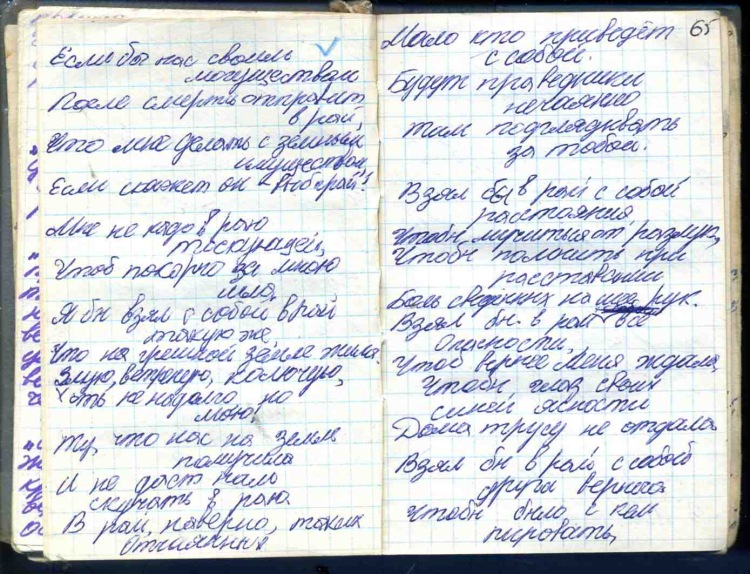 Если бы нас своим
могуществом
После смерти отправит
в рай,
Что мне делать с земным
имуществом,
Если скажет он - Выбирай!
Мне не надо в раю
тоскующей,
Чтоб покорно за мною
шла,
Я бы взял с собой в рай
такую же,
Что на грешной земле жила.
Злую, ветреную, колючую,
Хоть не надолго, но
мою,
Ту, что нас на земле
помучила
И не даст нам
скучать в раю.
В рай, наверно, таких
отчаянных
65
Мало кто приведёт
с собой.
Будут праведники
нечаянно
там подглядывать
за тобой.
Взял бы в рай с собой
расстояния
Чтобы мучиться от разлук,
Чтобы помнить при
расставании
Боль сведенных на рук.
Взял бы в рай все
опасности,
Чтоб вернее меня ждала,
Чтобы глаз своих
синей ясности
Дома трусу не отдала
Взял бы в рай с собой
друга верного
Чтобы было с кем
пировать,